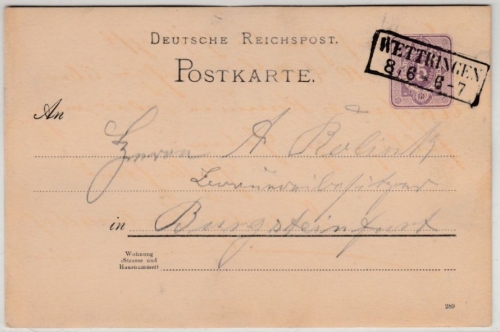 DEUTSCHE REICHSPOST.
POSTKARTE.
WETTRINGEN
8 6 6-7
An
Herrn A Rolinck
in Burgsteinfurt
Wohnung
(Strasse und
Hausnummer)
289